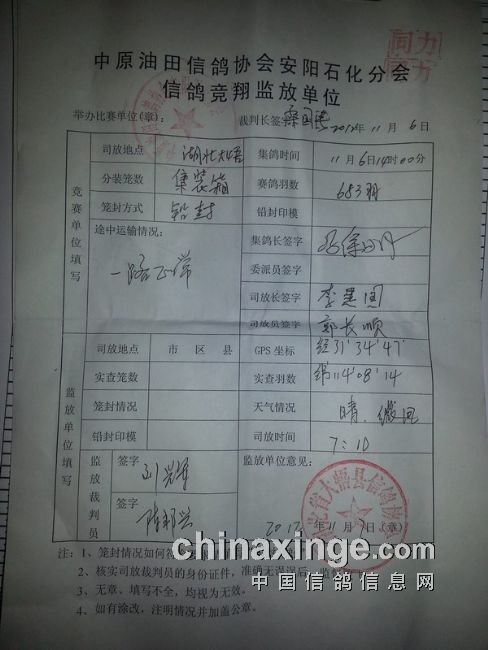 中原油田信鸽协会安阳石化分会
信鸽竞翔监放单位
同力
举办比赛单位(章): 裁判长签字 2012年11月6日
竞赛单位填写
司放地点 湖北大悟 集鸽时间 11月6日14时00分
分装笼数 集装箱 赛鸽羽数 653羽
笼封方式 铅封 铅封印模
途中运输情况: 集鸽长签字
一路正常 委派员签字
司放长签字 李建国
司放员签字 郭长顺
监放单位填写
司放地点 市 区 县 GPS 坐标 经31°34'47"
实查笼数 实查羽数 纬114°08'14
笼封情况 天气情况 晴、微风
铅封印模 司放时间 7:10
监放裁判员 签字 监放单位意见:
签字 2012年11月7日(章)
大悟县信鸽协会
注: 1、笼封情况如何
2、核实司放裁判员的身份证件，准确无误后，监
3、无章、填写不全，均视为无效。
4、如有涂改，注明情况并加盖公章。
chinaxinge.com
中国信鸽信息网